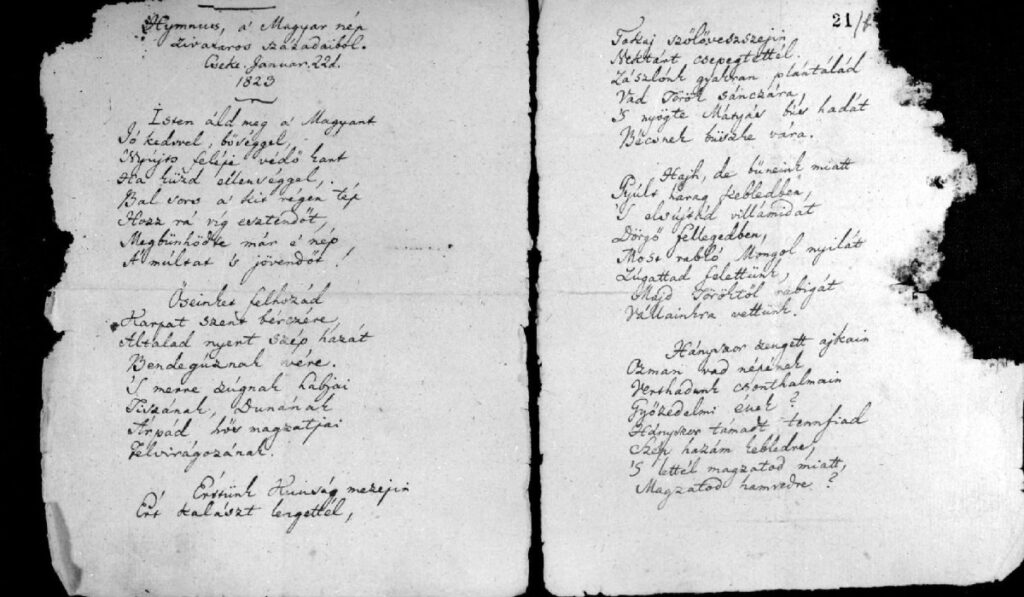 Hymnus, a' Magyar nép
zivataros századaiból.
Cseke. Januar. 22d.
1823
Isten áldd meg a' Magyart
Jó kedvvel, bőséggel,
Nyújts feléje védő kart
Ha küzd ellenséggel,
Bal sors a' kit régen tép
Hozz rá víg esztendőt,
Megbünhödte már e' nép
A' múltat 's jövendőt!
Őseinket felhozád
Kárpát szent bérczére,
Általad nyert szép hazát
Bendegúznak vére.
'S merre zúgnak habjai
Tiszának, Dunának
Árpád hős magzatjai
Felvirágozának.
Értünk Kunság mezején
Ért kalászt lengettél,
21/
Tokaj szőlővesszején
Nektárt csepegtettél.
Zászlónk gyakran plántálád
Vad Török sánczára,
'S nyögte Mátyás bús hadát
Bécsnek büszke vára.
Hajh, de bűneink miatt
Gyúlt harag kebledben,
'S elsújtád villámidat
Dörgő fellegedben,
Most rabló Mongol nyilát
Zúgattad felettünk,
Majd Töröktől rabigát
Vállainkra vettünk.
Hányszor zengett ajkain
Ozman vad népének
Vert hadunk csonthalmain
Győzedelmi ének?
Hányszor támadt tennfiad
Szép hazám kebledre,
'S lettél magzatod miatt,
Magzatod hamvedre?